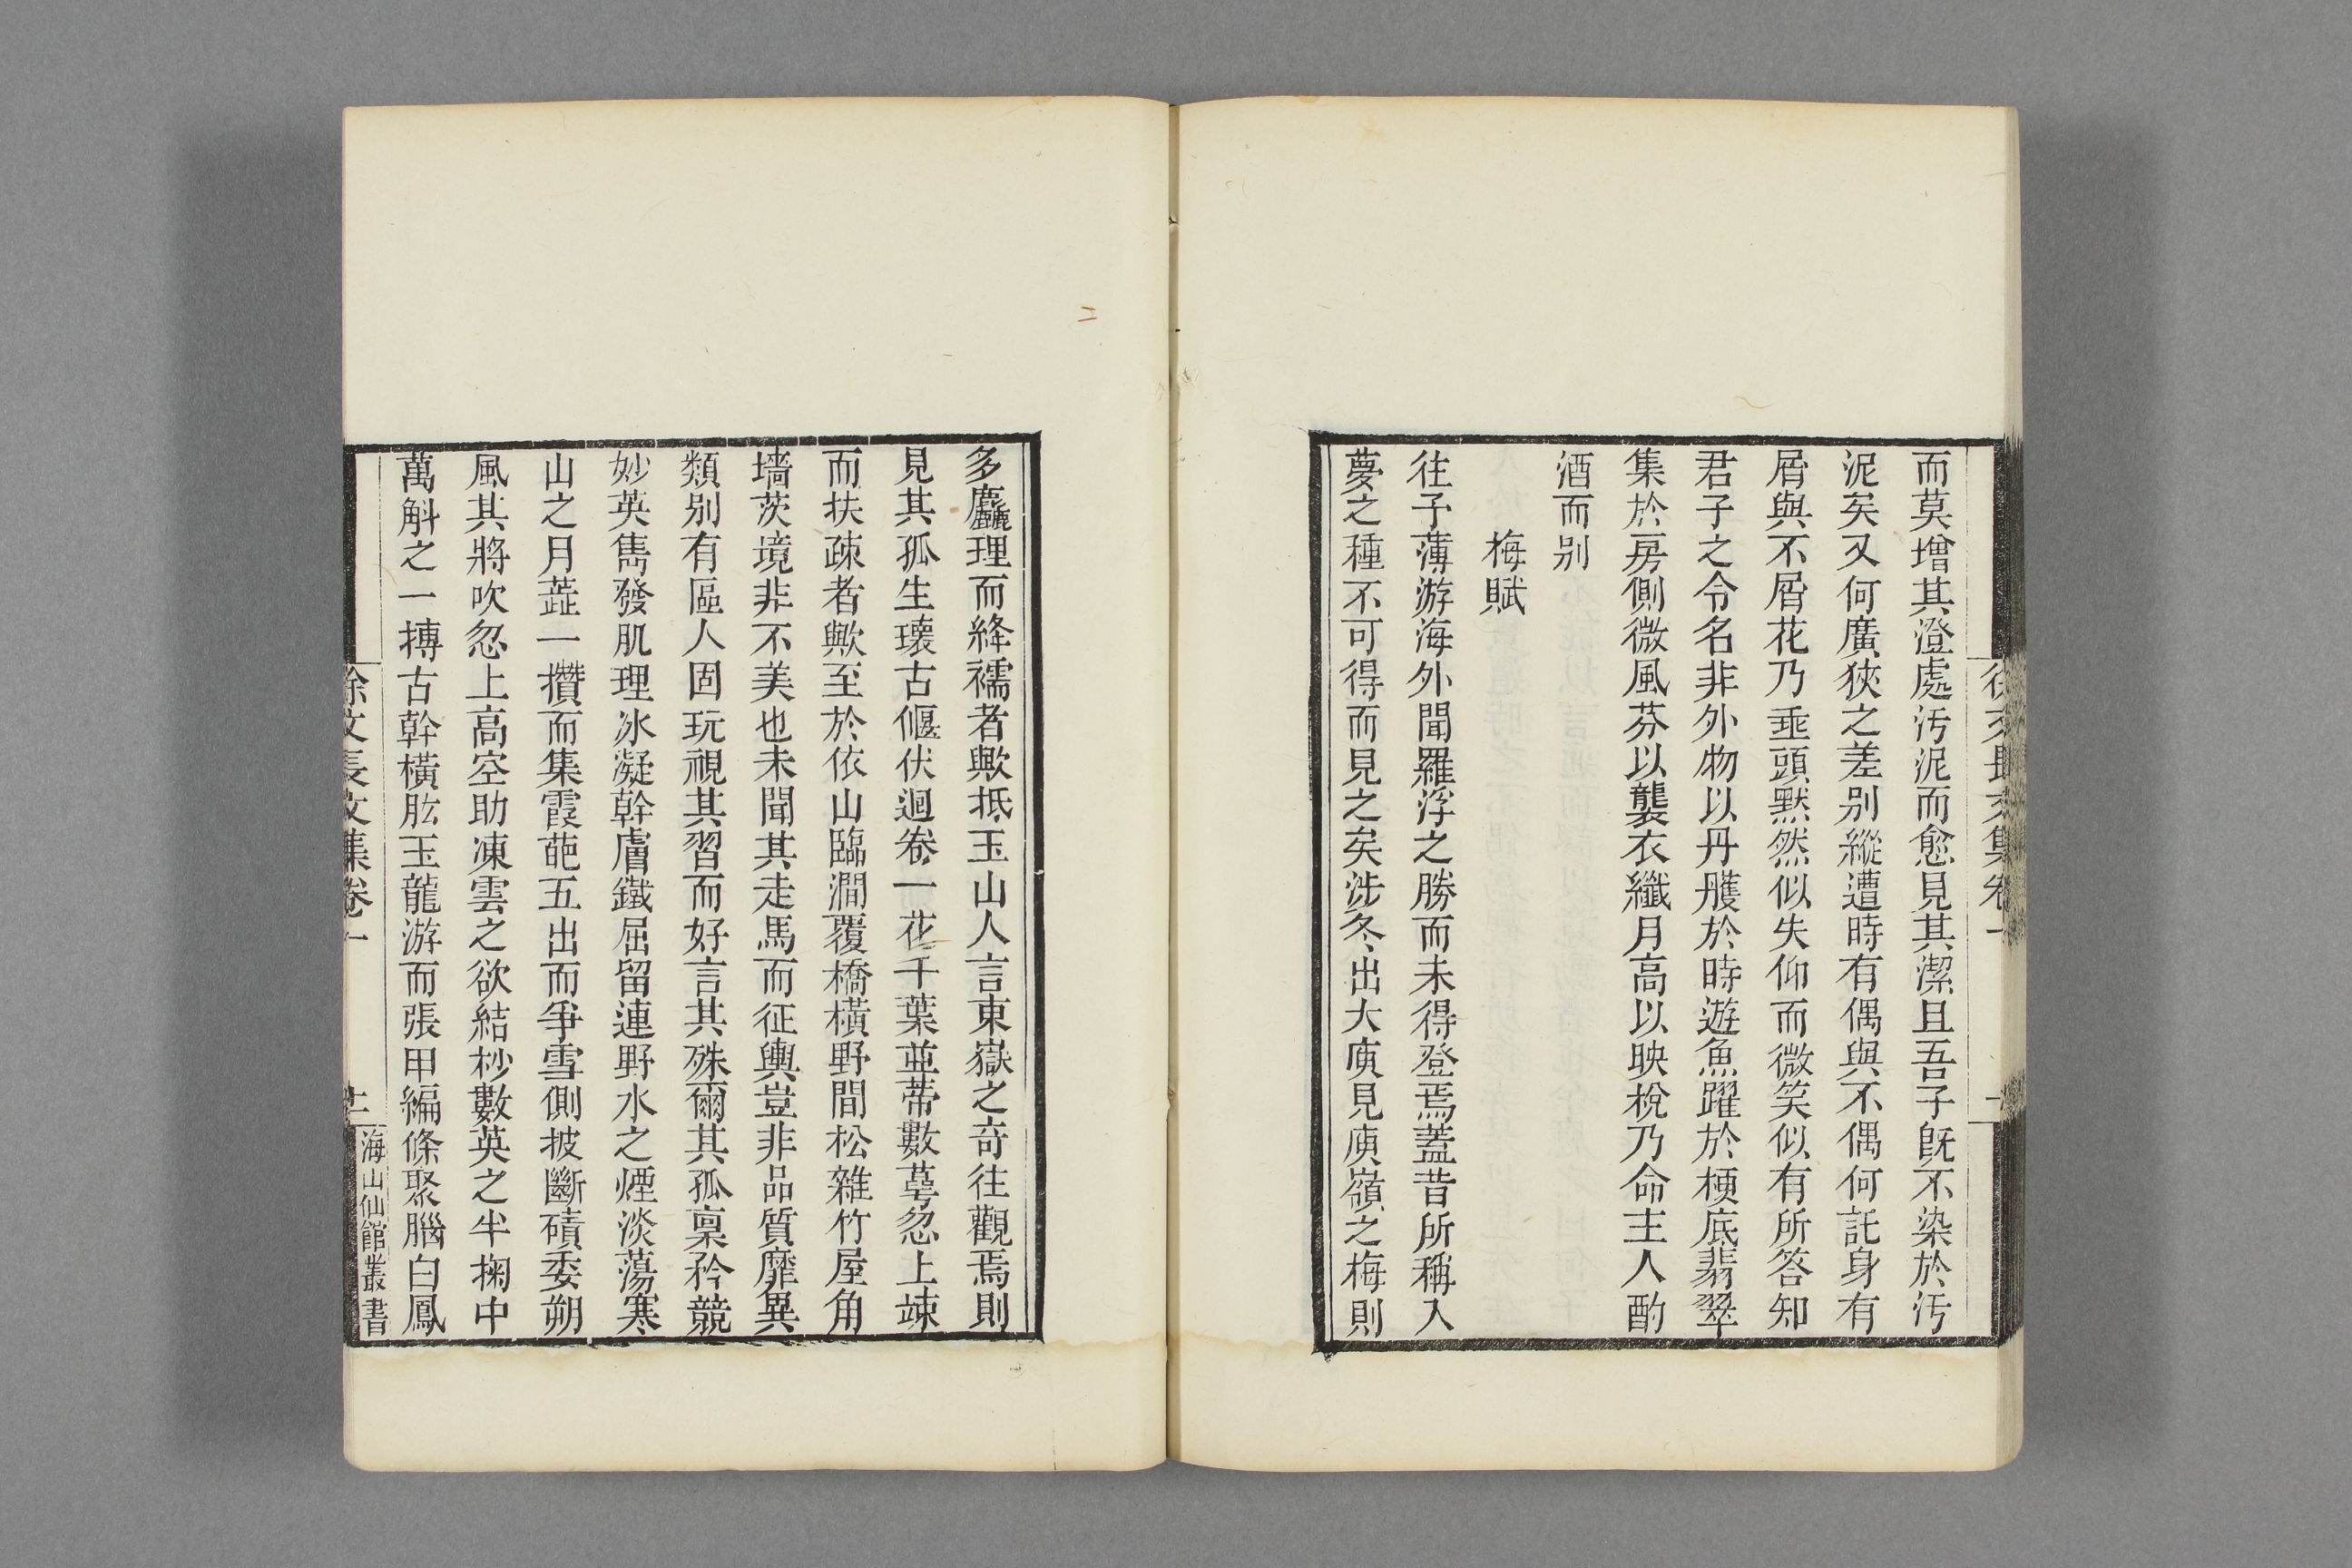 而莫增其澄處汚泥而愈見其潔且吾子旣不染於汚
泥矣又何廣狹之差別縱遭時有偶與不偶何託身有
屑與不屑花乃垂頭默然似失仰而微笑似有所答知
君子之令名非外物以丹雘於時遊魚躍於梗底翡翠
集於房側微風芬以襲衣纖月高以映梲乃命主人酌
酒而別
梅賦
往予薄游海外聞羅浮之勝而未得登焉蓋昔所稱入
夢之種不可得而見之矣涉冬出大庾見庾嶺之梅則
多麤理而絳襦者歟抵玉山人言東嶽之奇往觀焉則
見其孤生瓌古偃伏迴卷一花千葉並蒂數萼忽上竦
而扶疎者歟至於依山臨澗覆橋橫野間松雜竹屋角
墻茨境非不美也未聞其走馬而征輿豈非品質靡異
類別有區人固玩視其習而好言其殊爾其孤稟矜競
妙英雋發肌理冰凝幹膚鐵屈留連野水之煙淡蕩寒
山之月蕋一攢而集霞葩五出而爭雪側披斷磧委朔
風其將吹忽上高空助凍雲之欲結杪數英之半掬中
萬斛之一摶古幹橫肱玉龍游而張甲編條聚腦白鳳
徐文長文集卷一
十二
海山仙館叢書